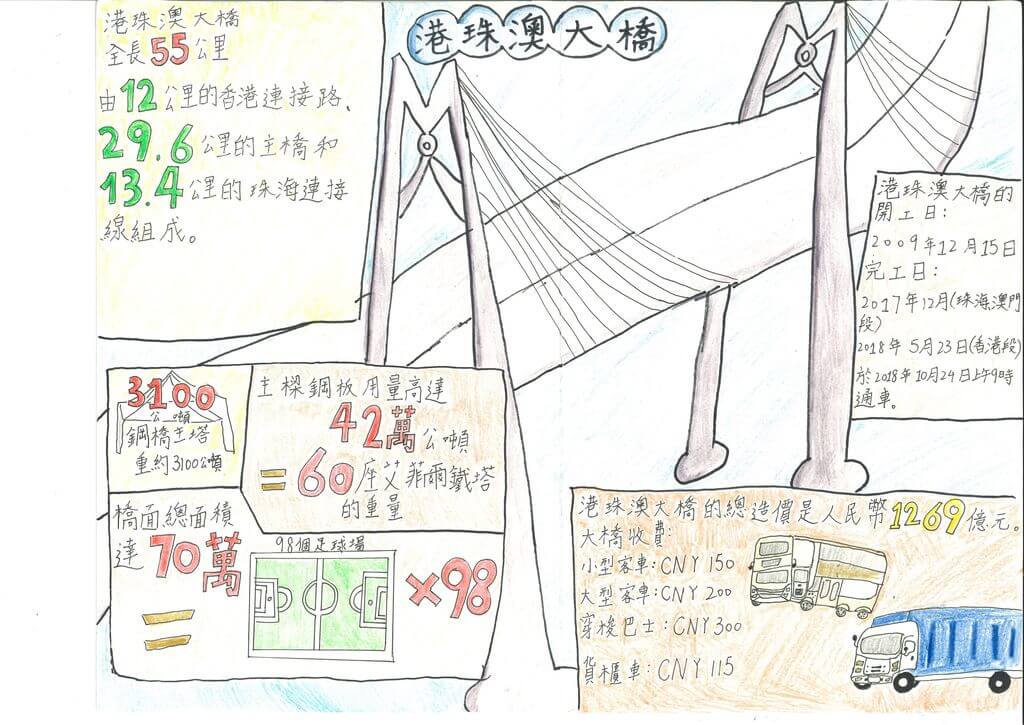 港珠澳大橋
港珠澳大橋
全長55公里
由12公里的香港連接路、
29.6公里的主橋和
13.4公里的珠海連接
線組成。
港珠澳大橋的
開工日:
2009年12月15日
完工日:
2017年12月(珠海澳門
段)
2018年5月23日(香港段)
於2018年10月24日上午9時
通車。
3100
公噸
鋼橋主塔
重約3100公噸
主樑鋼板用量高達
42萬公噸
=60座艾菲爾鐵塔
的重量
橋面總面積
達70萬
=
98個足球場
×98
港珠澳大橋的總造價是人民幣1269億元。
大橋收費:
小型客車:CNY 150
大型客車:CNY 200
穿梭巴士:CNY 300
貨櫃車:CNY 115